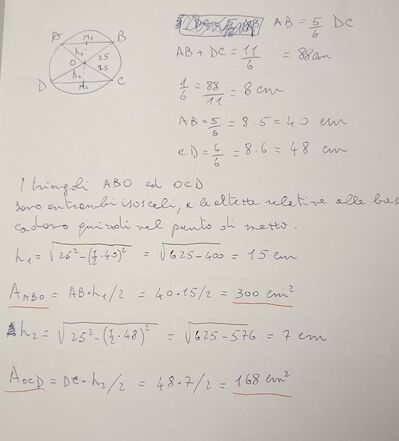 AB = 5/6 DC
A M₁ B
h₁ 25
O 25
h₂
D M₂ C
AB + DC = 11/6 = 88 cm
1/6 = 88/11 = 8 cm
AB = 5/6 = 8 · 5 = 40 cm
CD = 6/6 = 8 · 6 = 48 cm
I triangoli ABO ed OCD
sono entrambi isosceli, e le altezze relative alle basi
cadono quindi nel punto di mezzo.
h₁ = √(25² - (1/2 · 40)²) = √(625 - 400) = 15 cm
A_ABO = AB · h₁/2 = 40 · 15/2 = 300 cm²
h₂ = √(25² - (1/2 · 48)²) = √(625 - 576) = 7 cm
A_OCD = DC · h₂/2 = 48 · 7/2 = 168 cm²